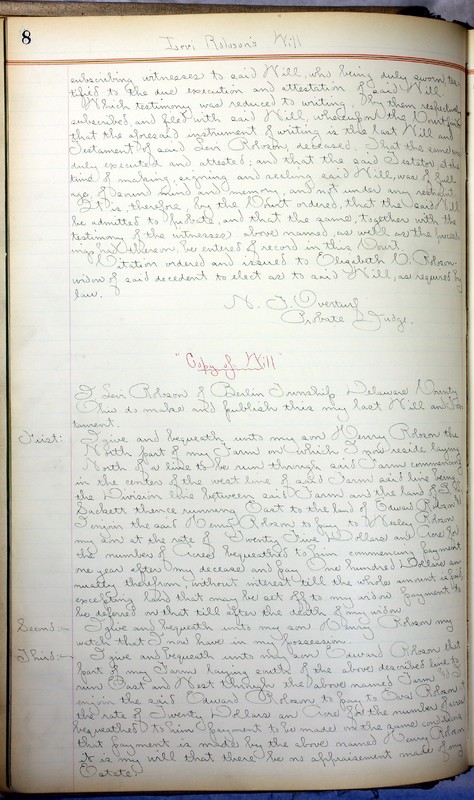 8
Levi Robson's Will
subscribing witnesses to said Will, who being duly sworn tes-
tified to the due execution and attestation of said Will
Which testimony was reduced to writing, by them respectively
subscribed, and filed with said Will, whereupon the Court finds
that the aforesaid instrument of writing is the last Will and
Testament of said Levi Robson, deceased. That the same was
duly executed and attested; and that the said Testator, at the
time of making, signing and sealing said Will, was of full
age, of sound mind and memory, and not under any restraint.
It is, therefore, by the Court ordered, that the said Will
be admitted to probate, and that the same, together with the
testimony of the witnesses above named, as well as the proceed-
ings had thereon, be entered of record in this Court.
Citation ordered and issued to Elizabeth Robson
widow of said decedent to elect as to said Will, as required by
law.
N. F. Overturf
Probate Judge.
"Copy of Will"
I Levi Robson of Berlin Township Delaware County
Ohio do make and publish this my last Will and Tes-
tament.
First: I give and bequeath unto my son Henry Robson the
North part of my Farm on which I now reside laying
North of a line to be run through said Farm commencing
in the center of the west line of said Farm said line being
the Division line between said Farm and the land of
Sackett thence running East to the land of Edward Robson &
I enjoin the said Henry Robson to pay to Wesley Robson
my son at the rate of Twenty Five Dollars an Acre for
the number of Acres bequeathed to him commencing payment
one year after my decease and pay One Hundred Dollars an-
nually therefrom without interest till the whole amount is paid
excepting land that may be set off to my widow payment to
be defered on that till after the death of my widow
Second:- I give and bequeath unto my son Henry Robson my
watch that I now have in my possession.
Third:- I give and bequeath unto my son Edward Robson that
part of my Farm laying south of the above described line to
run East and West through the above named Farm & I
enjoin the said Edward Robson to pay to Robson
the rate of Twenty Dollars an Acre for the number of acres
bequeathed to him payment to be made on the same conditions
that payment is made by the above named Henry Robson
It is my will that there be no appraisement made of my
Estate.